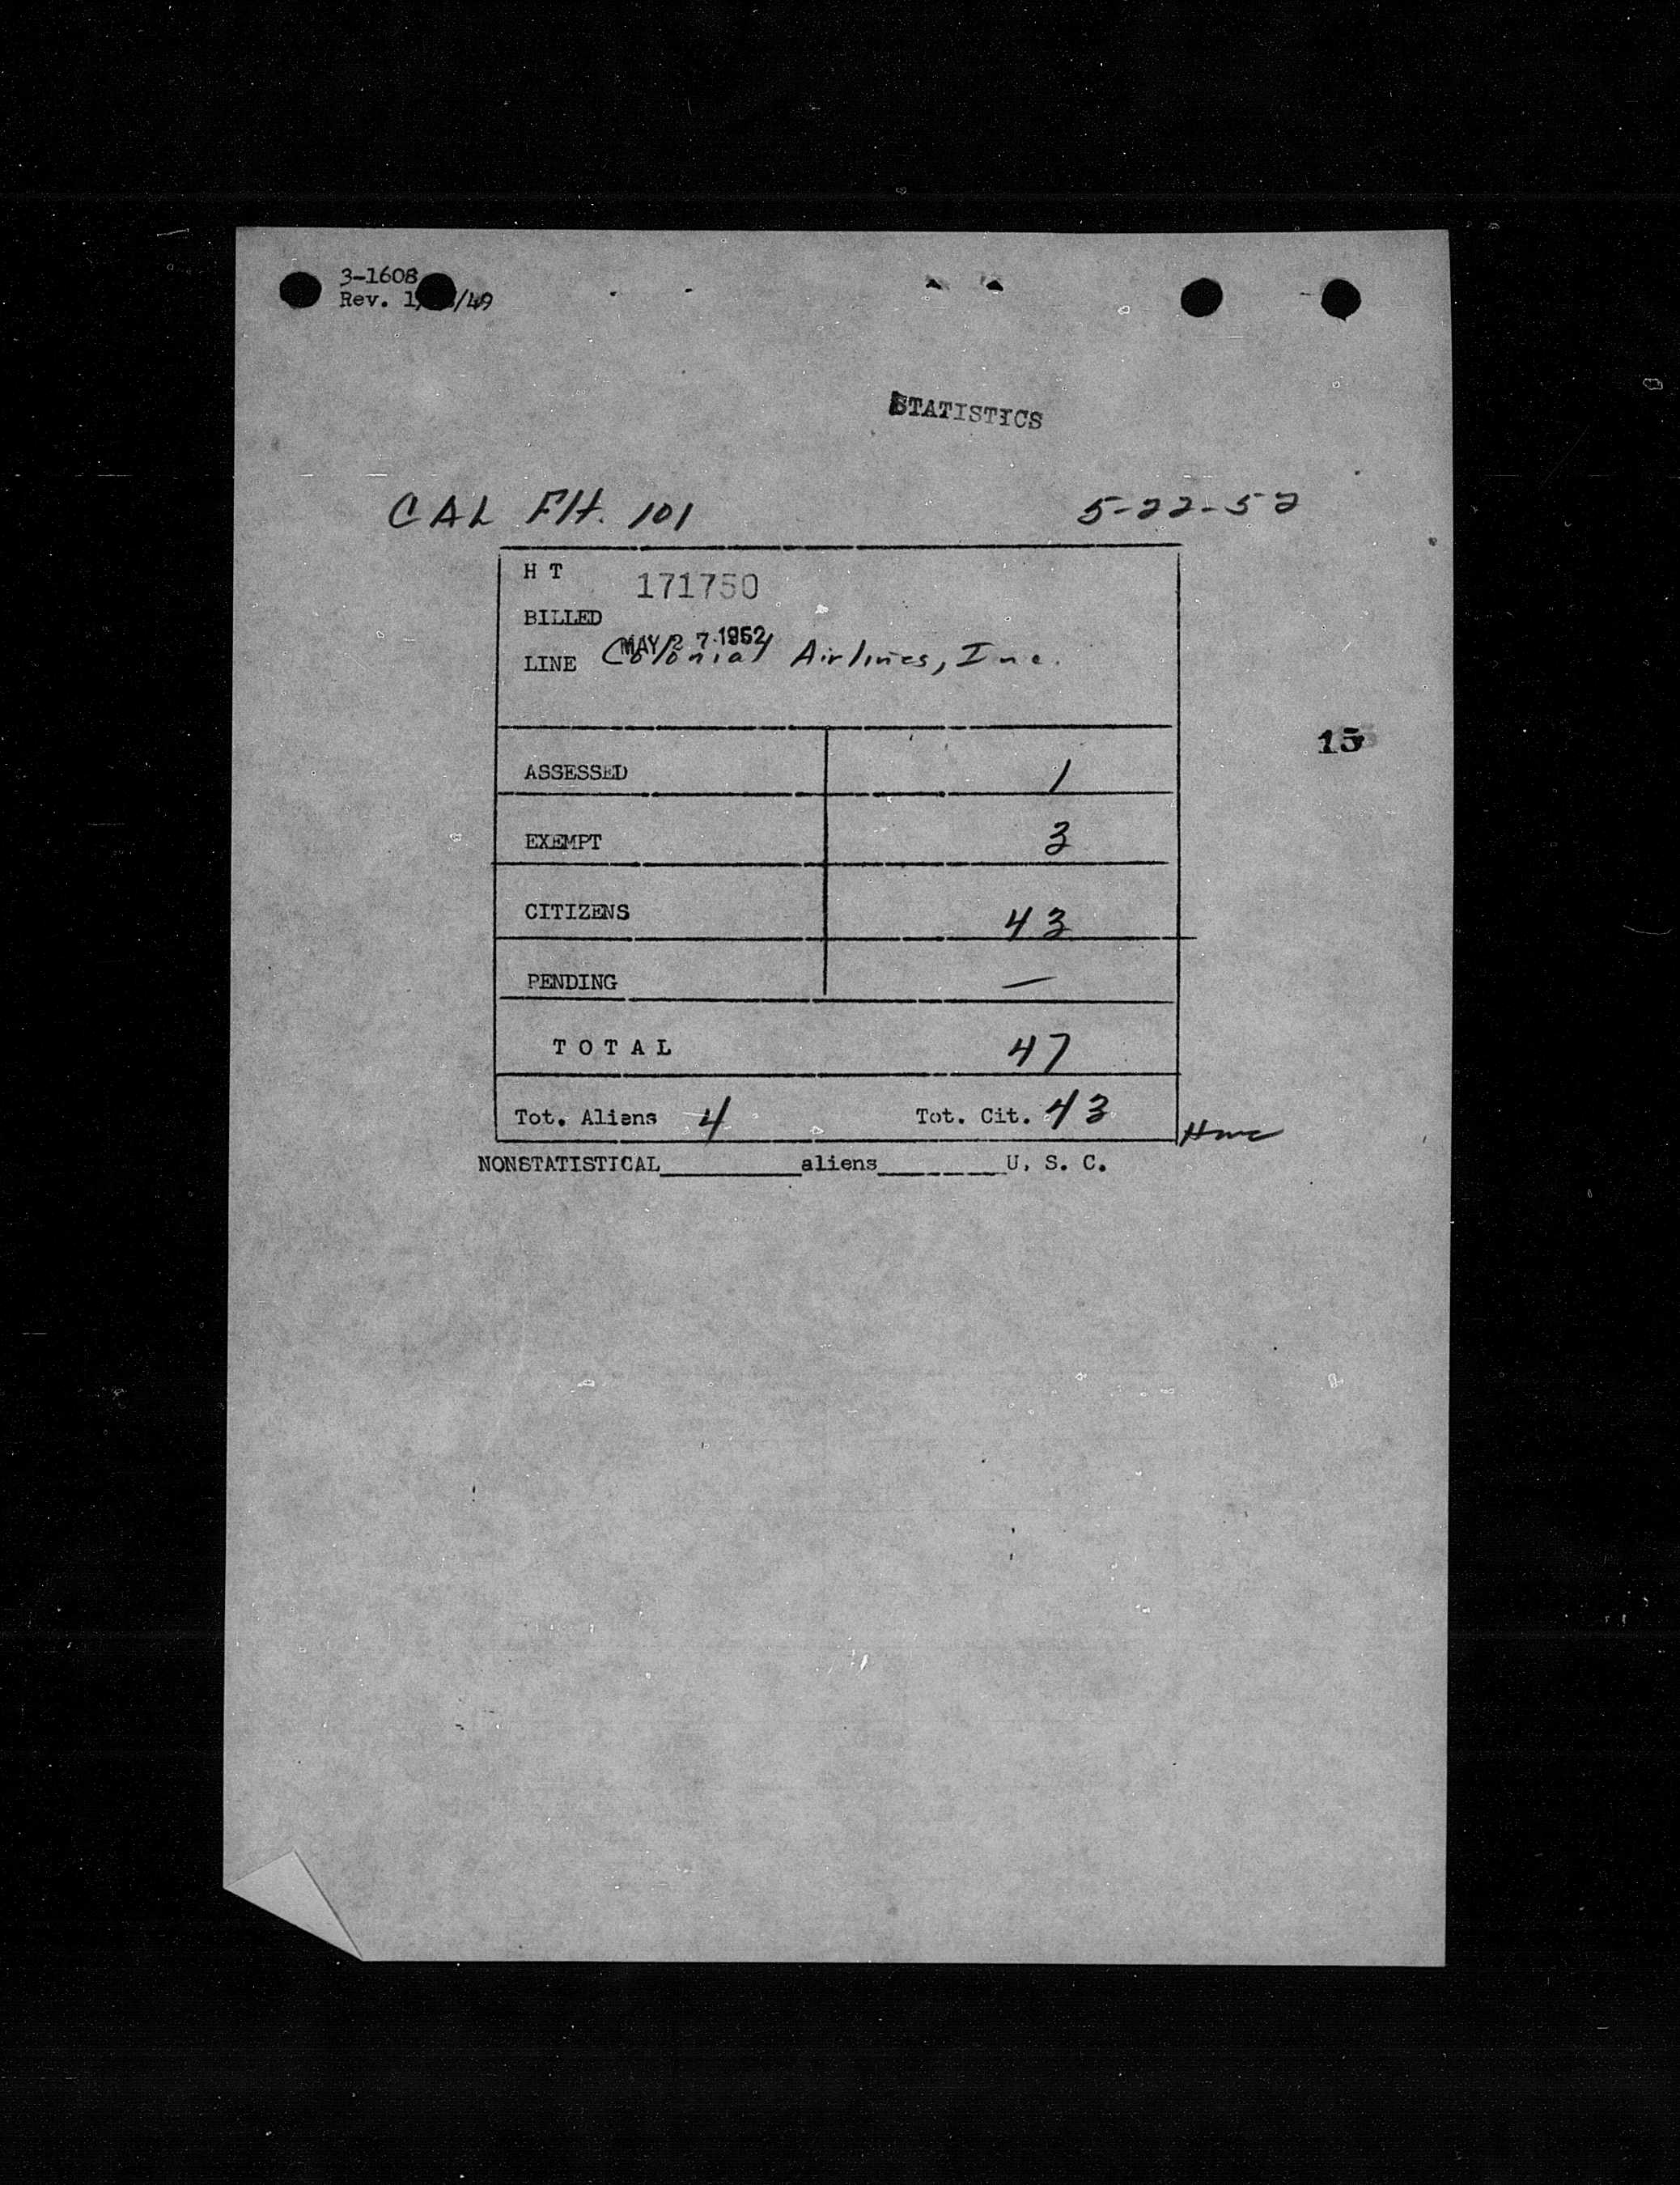 3-1608
Rev. 1/ /49
STATISTICS
CAL Flt. 101 5-22-52
H T 171750
BILLED
MAY 27 1952
LINE Colonial Airlines, Inc.
15
ASSESSED 1
EXEMPT 3
CITIZENS 43
PENDING —
TOTAL 47
Tot. Aliens 4 Tot. Cit. 43
NONSTATISTICAL__________aliens_________U. S. C.